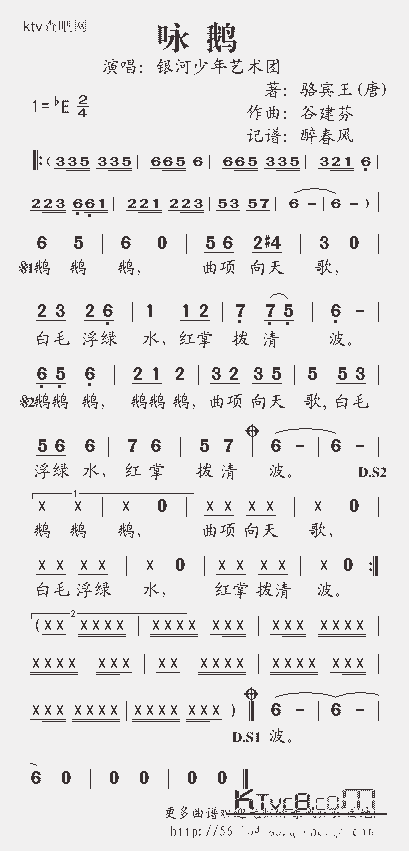 咏鹅
演唱：银河少年艺术团
著：骆宾王(唐)
1=♭E 2/4
作曲：谷建芬
记谱：醉春风
‖:(335 335 | 665 6 | 665 335 | 335 335 | 321 6 |
223 661 | 221 223 | 53 57 | 6 - | 6 - )
6 5 | 6 0 | 56 2#4 | 3 0 |
𝄋1鹅 鹅 鹅, 曲项 向天 歌,
23 26 | 1 12 | 7 75 | 6 - |
白毛 浮绿 水,红掌 拨清 波。
65 6 | 21 2 | 32 35 | 5 53 |
𝄋2鹅鹅 鹅, 鹅鹅 鹅,曲项 向天 歌,白毛
56 6 | 7 6 | 5 7 | 6 - | 6 - |
浮绿 水,红掌 拨清 波。 D.S2
1
X X | X 0 | XX XX | X 0 |
鹅 鹅 鹅, 曲项 向天 歌,
XX XX | X 0 | XX XX | X 0 :‖
白毛 浮绿 水, 红掌 拨清 波。
2
(XX XXXX | XXXX XXX | XXX XXX | XXX XXXX |
XXXX XXX | XX XXXX | XXX XXX | XXX XXX |
XXX XXXX | XXXX XXX ) ‖ 6 - | 6 - | 6 - |
D.S1 波。
6 0 | 0 0 | 0 0 | 0 0 ‖
KTvc8.com